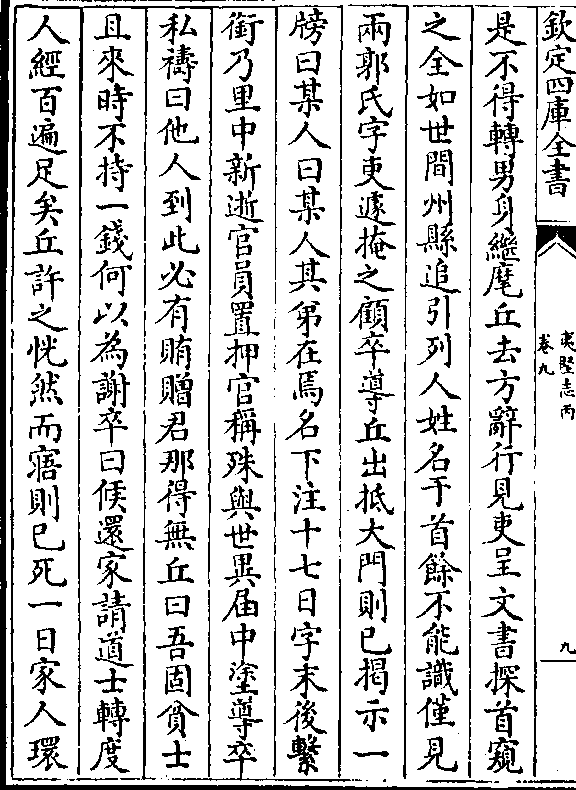 欽定四庫全書
夷堅志丙
卷九
九
是不得轉男身繼麾丘去方辭行見吏呈文書探首窺
之全如世間州縣追引列人姓名干首餘不能識僅見
兩郭氏字吏遽掩之顧卒導丘出抵大門則已揭示一
牓曰某人曰某人其弟在焉名下注十七日字末後繫
銜乃里中新逝官員置押官稱殊與世異届中塗導卒
私禱曰他人到此必有賄贈君那得無丘曰吾固貧士
且來時不持一錢何以為謝卒曰候還家請道士轉度
人經百遍足矣丘許之恍然而寤則已死一日家人環